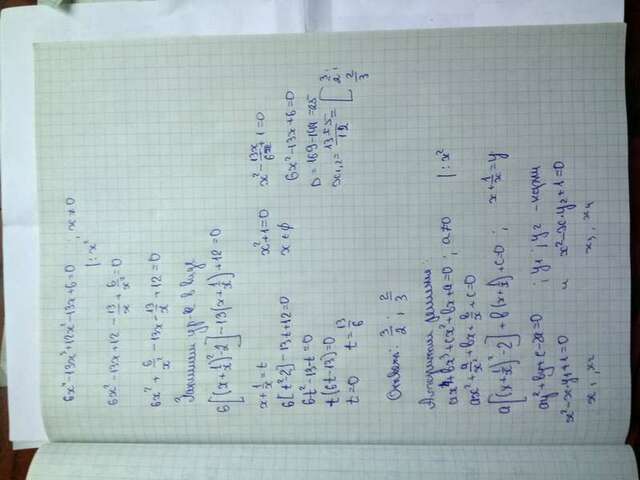 6x⁴-13x³+12x²-13x+6=0 |:x², x≠0
6x²-13x+12-13/x+6/x²=0
6x²+6/x²-13x-13/x+12=0
Запишем ур-е в виде
6[(x+1/x)²-2]-13(x+1/x)+12=0
x+1/x=t
6[t²-2]-13t+12=0
6t²-13t=0
t(6t-13)=0
t=0 t=13/6
x²+1=0
x∈ϕ
x²-13x/6+1=0
6x²-13x+6=0
D=169-144=25
x₁,₂=(13±5)/12=[3/2; 2/3
Ответ: 3/2; 2/3
Алгоритм решения:
ax⁴+bx³+cx²+bx+a=0; a≠0 |:x²
ax²+a/x²+bx+b/x+c=0
a[(x+1/x)²-2]+b(x+1/x)+c=0; x+1/x=y
ay²+by+c-2a=0; y₁; y₂ -корни
x²-xy₁+1=0 и x²-xy₂+1=0
x₁, x₂ x₃, x₄